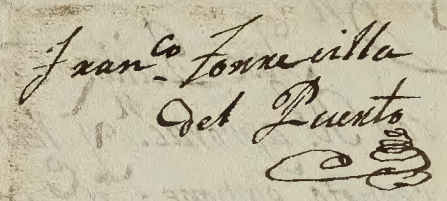 Fran.co Torrecilla
del Puerto